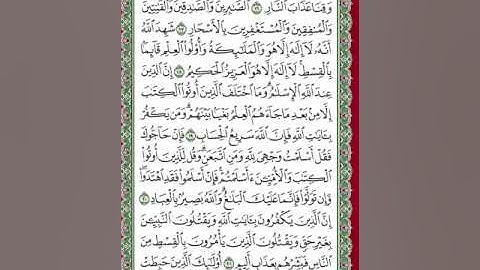 وَقِنَا عَذَابَ النَّارِ ١٦ الصَّابِرِينَ وَالصَّادِقِينَ وَالْقَانِتِينَ
وَالْمُنفِقِينَ وَالْمُسْتَغْفِرِينَ بِالْأَسْحَارِ ١٧ شَهِدَ اللَّهُ
أَنَّهُ لَا إِلَٰهَ إِلَّا هُوَ وَالْمَلَائِكَةُ وَأُولُوا الْعِلْمِ قَائِمًا
بِالْقِسْطِ لَا إِلَٰهَ إِلَّا هُوَ الْعَزِيزُ الْحَكِيمُ ١٨ إِنَّ الدِّينَ
عِندَ اللَّهِ الْإِسْلَامُ وَمَا اخْتَلَفَ الَّذِينَ أُوتُوا الْكِتَابَ
إِلَّا مِن بَعْدِ مَا جَاءَهُمُ الْعِلْمُ بَغْيًا بَيْنَهُمْ وَمَن يَكْفُرْ
بِآيَاتِ اللَّهِ فَإِنَّ اللَّهَ سَرِيعُ الْحِسَابِ ١٩ فَإِنْ حَاجُّوكَ
فَقُلْ أَسْلَمْتُ وَجْهِيَ لِلَّهِ وَمَنِ اتَّبَعَنِ وَقُل لِّلَّذِينَ أُوتُوا
الْكِتَابَ وَالْأُمِّيِّينَ أَأَسْلَمْتُمْ فَإِنْ أَسْلَمُوا فَقَدِ اهْتَدَوا
وَّإِن تَوَلَّوْا فَإِنَّمَا عَلَيْكَ الْبَلَاغُ وَاللَّهُ بَصِيرٌ بِالْعِبَادِ ٢٠
إِنَّ الَّذِينَ يَكْفُرُونَ بِآيَاتِ اللَّهِ وَيَقْتُلُونَ النَّبِيِّينَ
بِغَيْرِ حَقٍّ وَيَقْتُلُونَ الَّذِينَ يَأْمُرُونَ بِالْقِسْطِ مِنَ
النَّاسِ فَبَشِّرْهُم بِعَذَابٍ أَلِيمٍ ٢١ أُولَٰئِكَ الَّذِينَ حَبِطَتْ